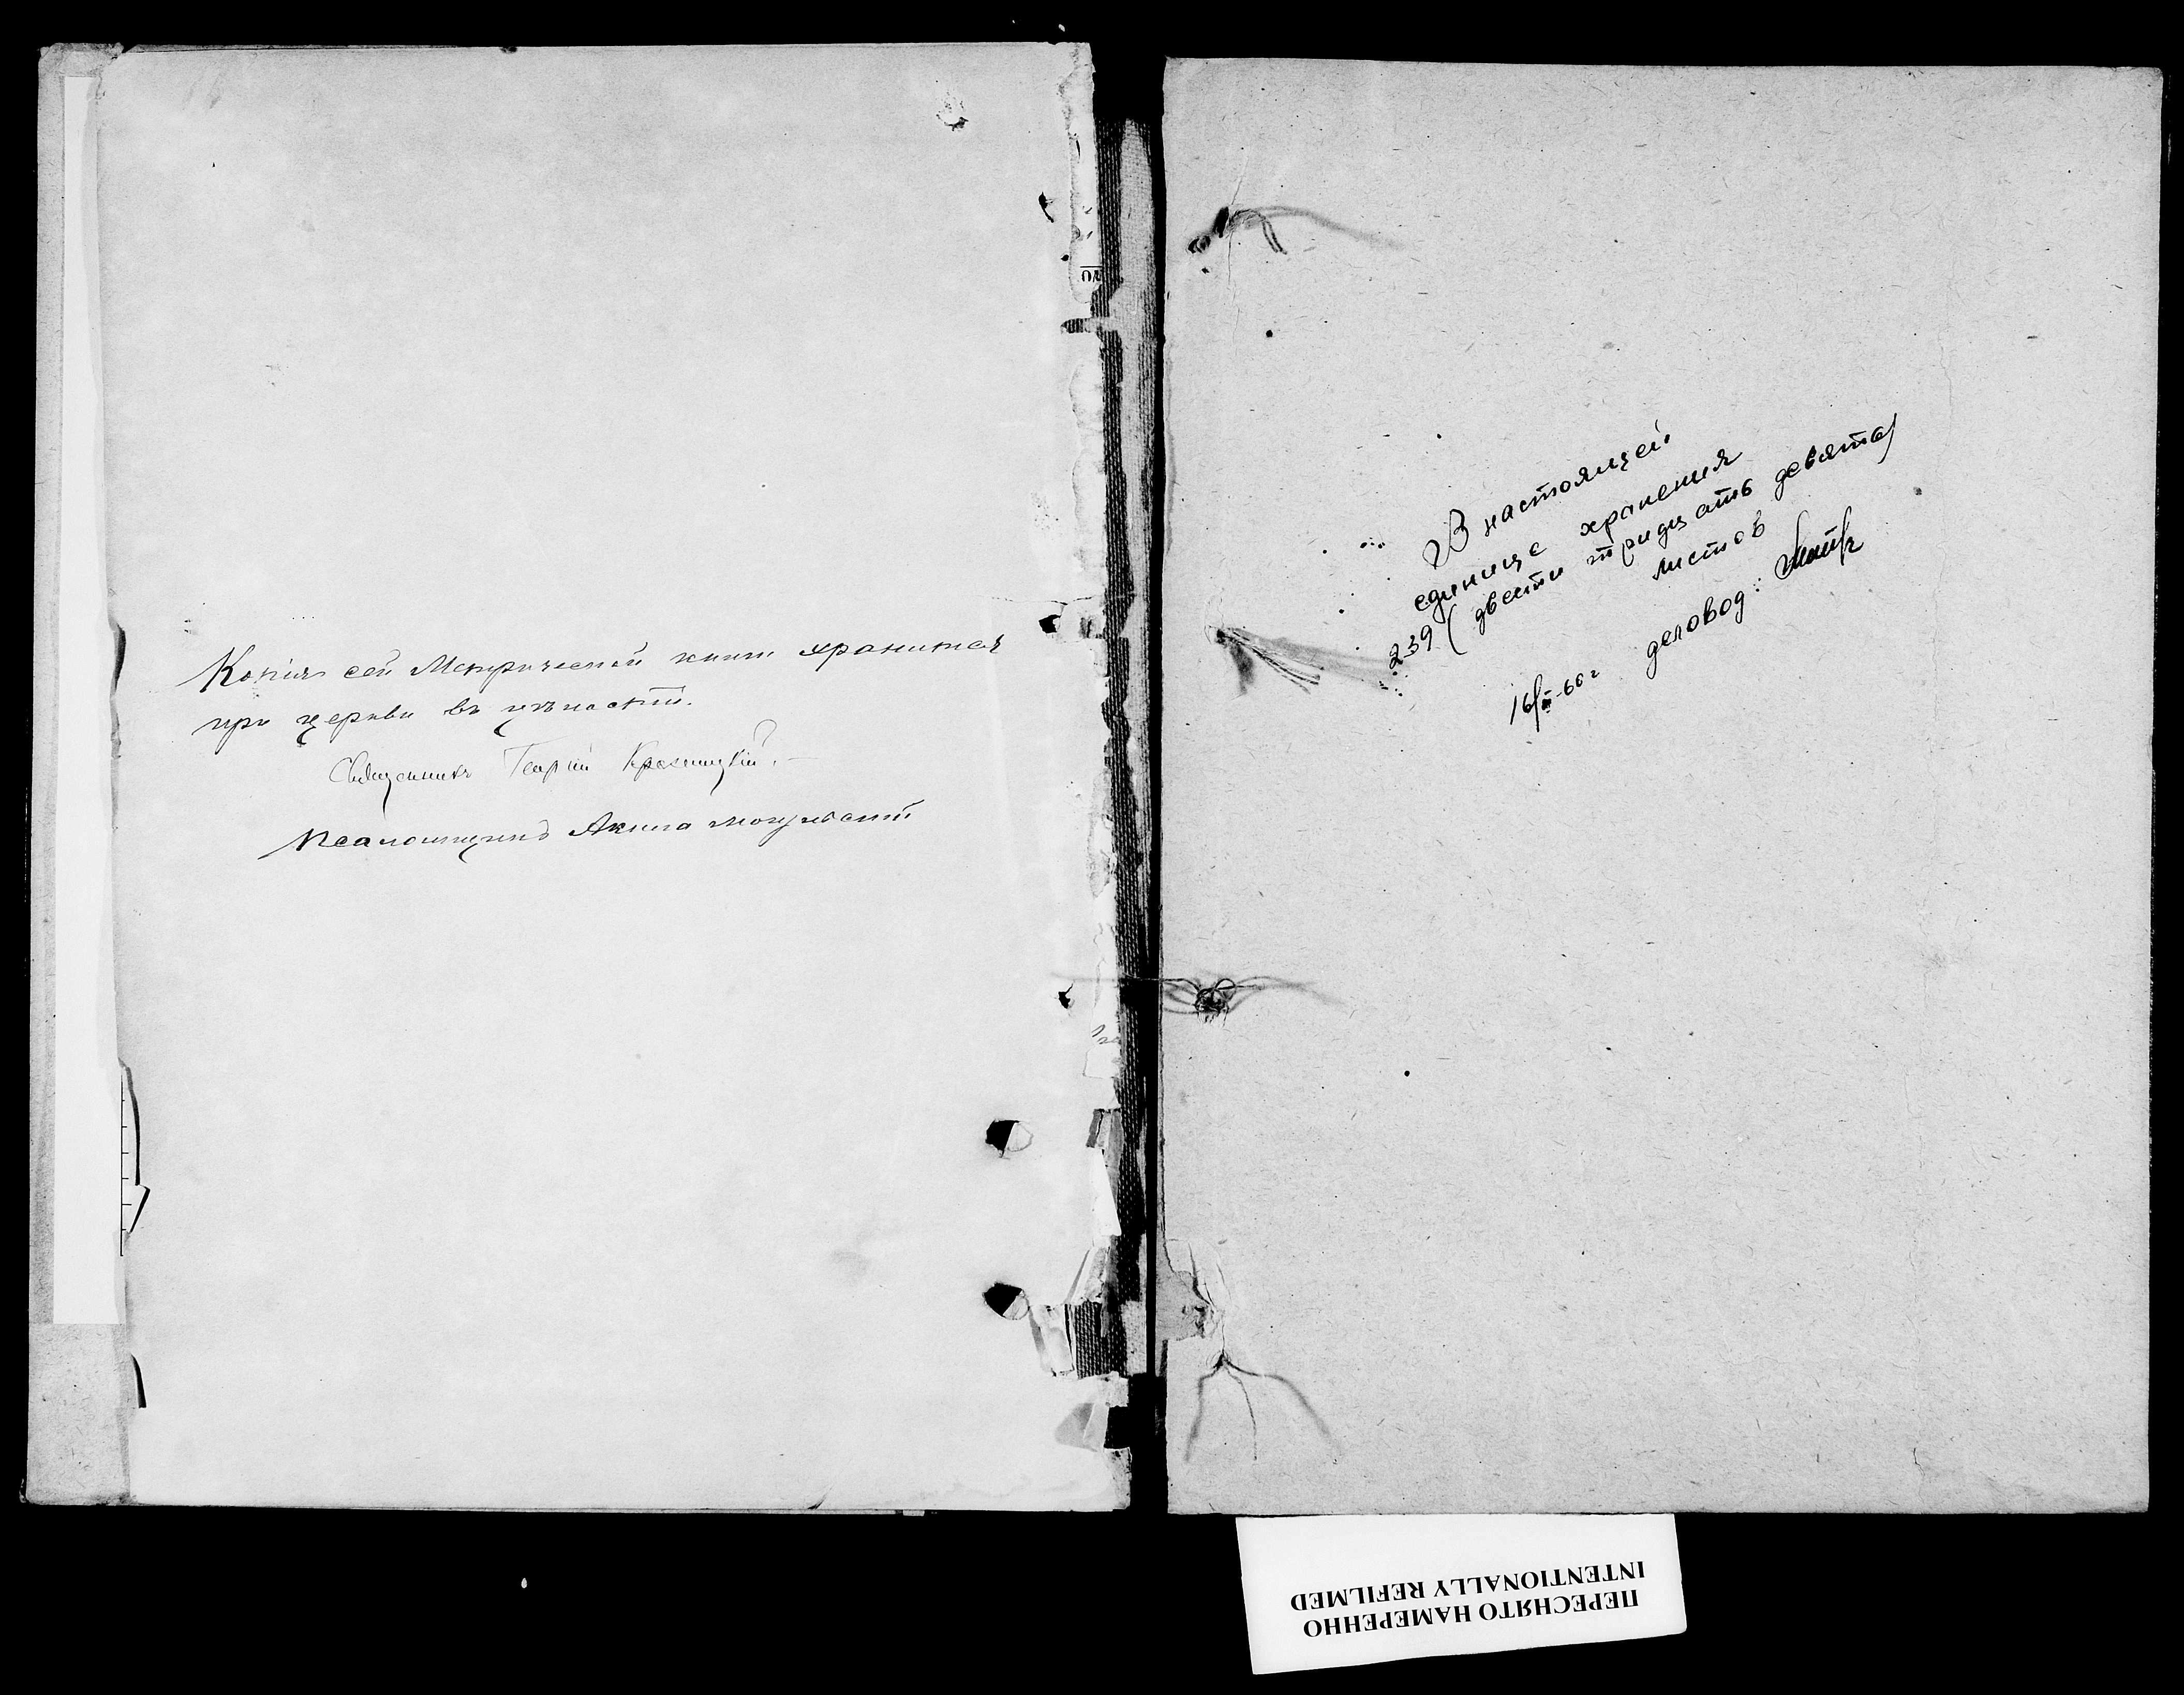 Копія сей Метрической книги хранится
при церкви въ цѣлости.
Священникъ Георгій
Псаломщикъ Акила
В настоящей
единице хранения
239 (двести тридцать девять)
листов
16/II-60 г деловод:
ПЕРЕСНЯТО НАМЕРЕННО
INTENTIONALLY REFILMED